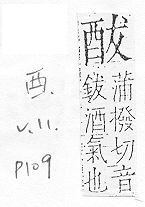 酉.
V.11.
P109
䣮
蒲撥切音
鈸酒氣也